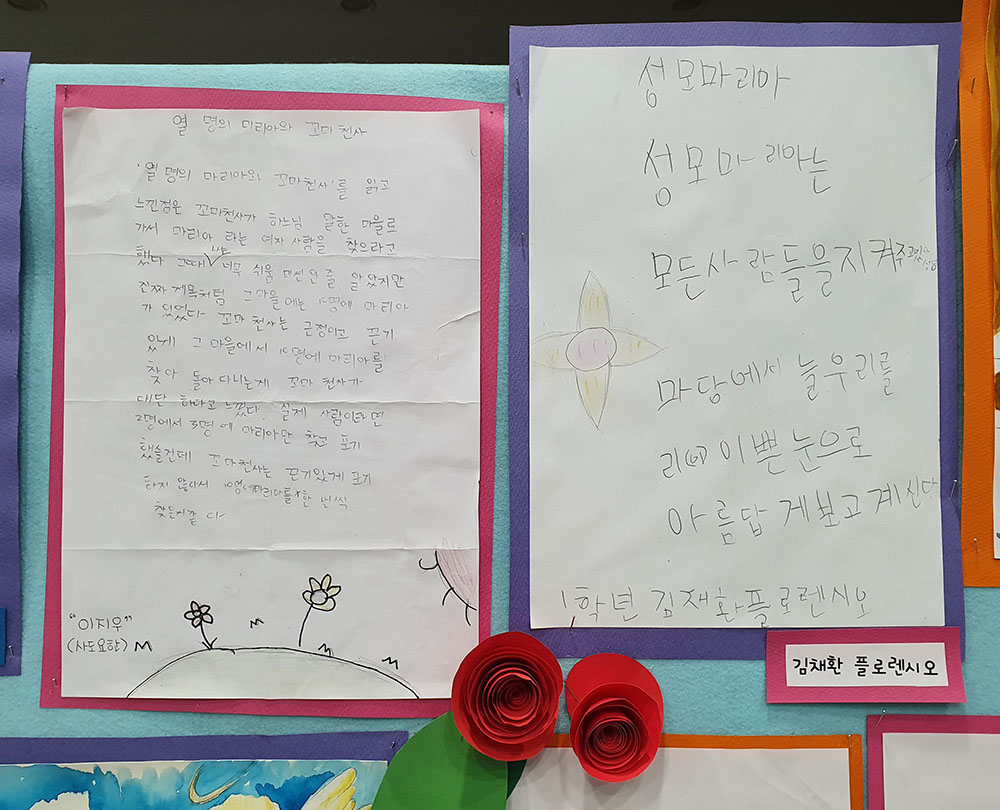 열 명의 마리아와 꼬마 천사
'열 명의 마리아와 꼬마천사'를 읽고
느낀점은 꼬마천사가 하느님 말한 마을로
가서 마리아 라는 여자 사람을 찾으라고
했다 그때 나는 너무 쉬움 미션인 줄 알았지만
진짜 제목처럼 그마을에는 10명에 마리아
가 있었다 꼬마 천사는 긍정이고 끈기
있게 그 마을에서 10명에 마리아를
찾아 돌아 다니는게 꼬마 천사가
대단 하다고 느꼈다. 실제 사람이라면
2명에서 3명 에 마리아만 찾고 포기
했슬건데 꼬마천사는 끈기있게 포기
하지 않아서 10명에마리아를 한 번씩
찾은거같 다
"이지우"
(사도요한)
성모마리아
성모마리아는
모든사람들을지켜주
마당에서 늘우리를
이쁜눈으로
아름답게보고계신다
1학년 김채환플로렌시오
김채환 플로렌시오